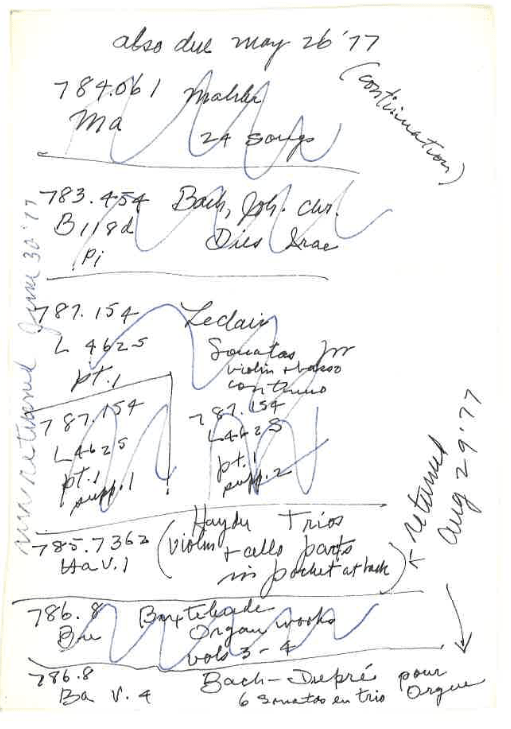 also due may 26 '77
(continuation)
784.061 Mahler
Ma 24 Songs
783.454 Bach, Joh. Chr.
B118d Dies Irae
Pi
787.154 Leclair
L4625 Sonatas for
pt.1 violin + basso
continuo
787.154 787.154
L4625 L4625
pt.1 pt.1
supp.1 supp.2
Haydn Trios
785.7362 (violin + cello parts
Ha V.1 in pocket at back)
786.8 Buxtehude
Bu Organ works
vols 3-4
786.8 Bach-Dupré pour
Ba V.4 6 Sonatas en trio Orgue
returned June 30 '77
returned
Aug 29 '77